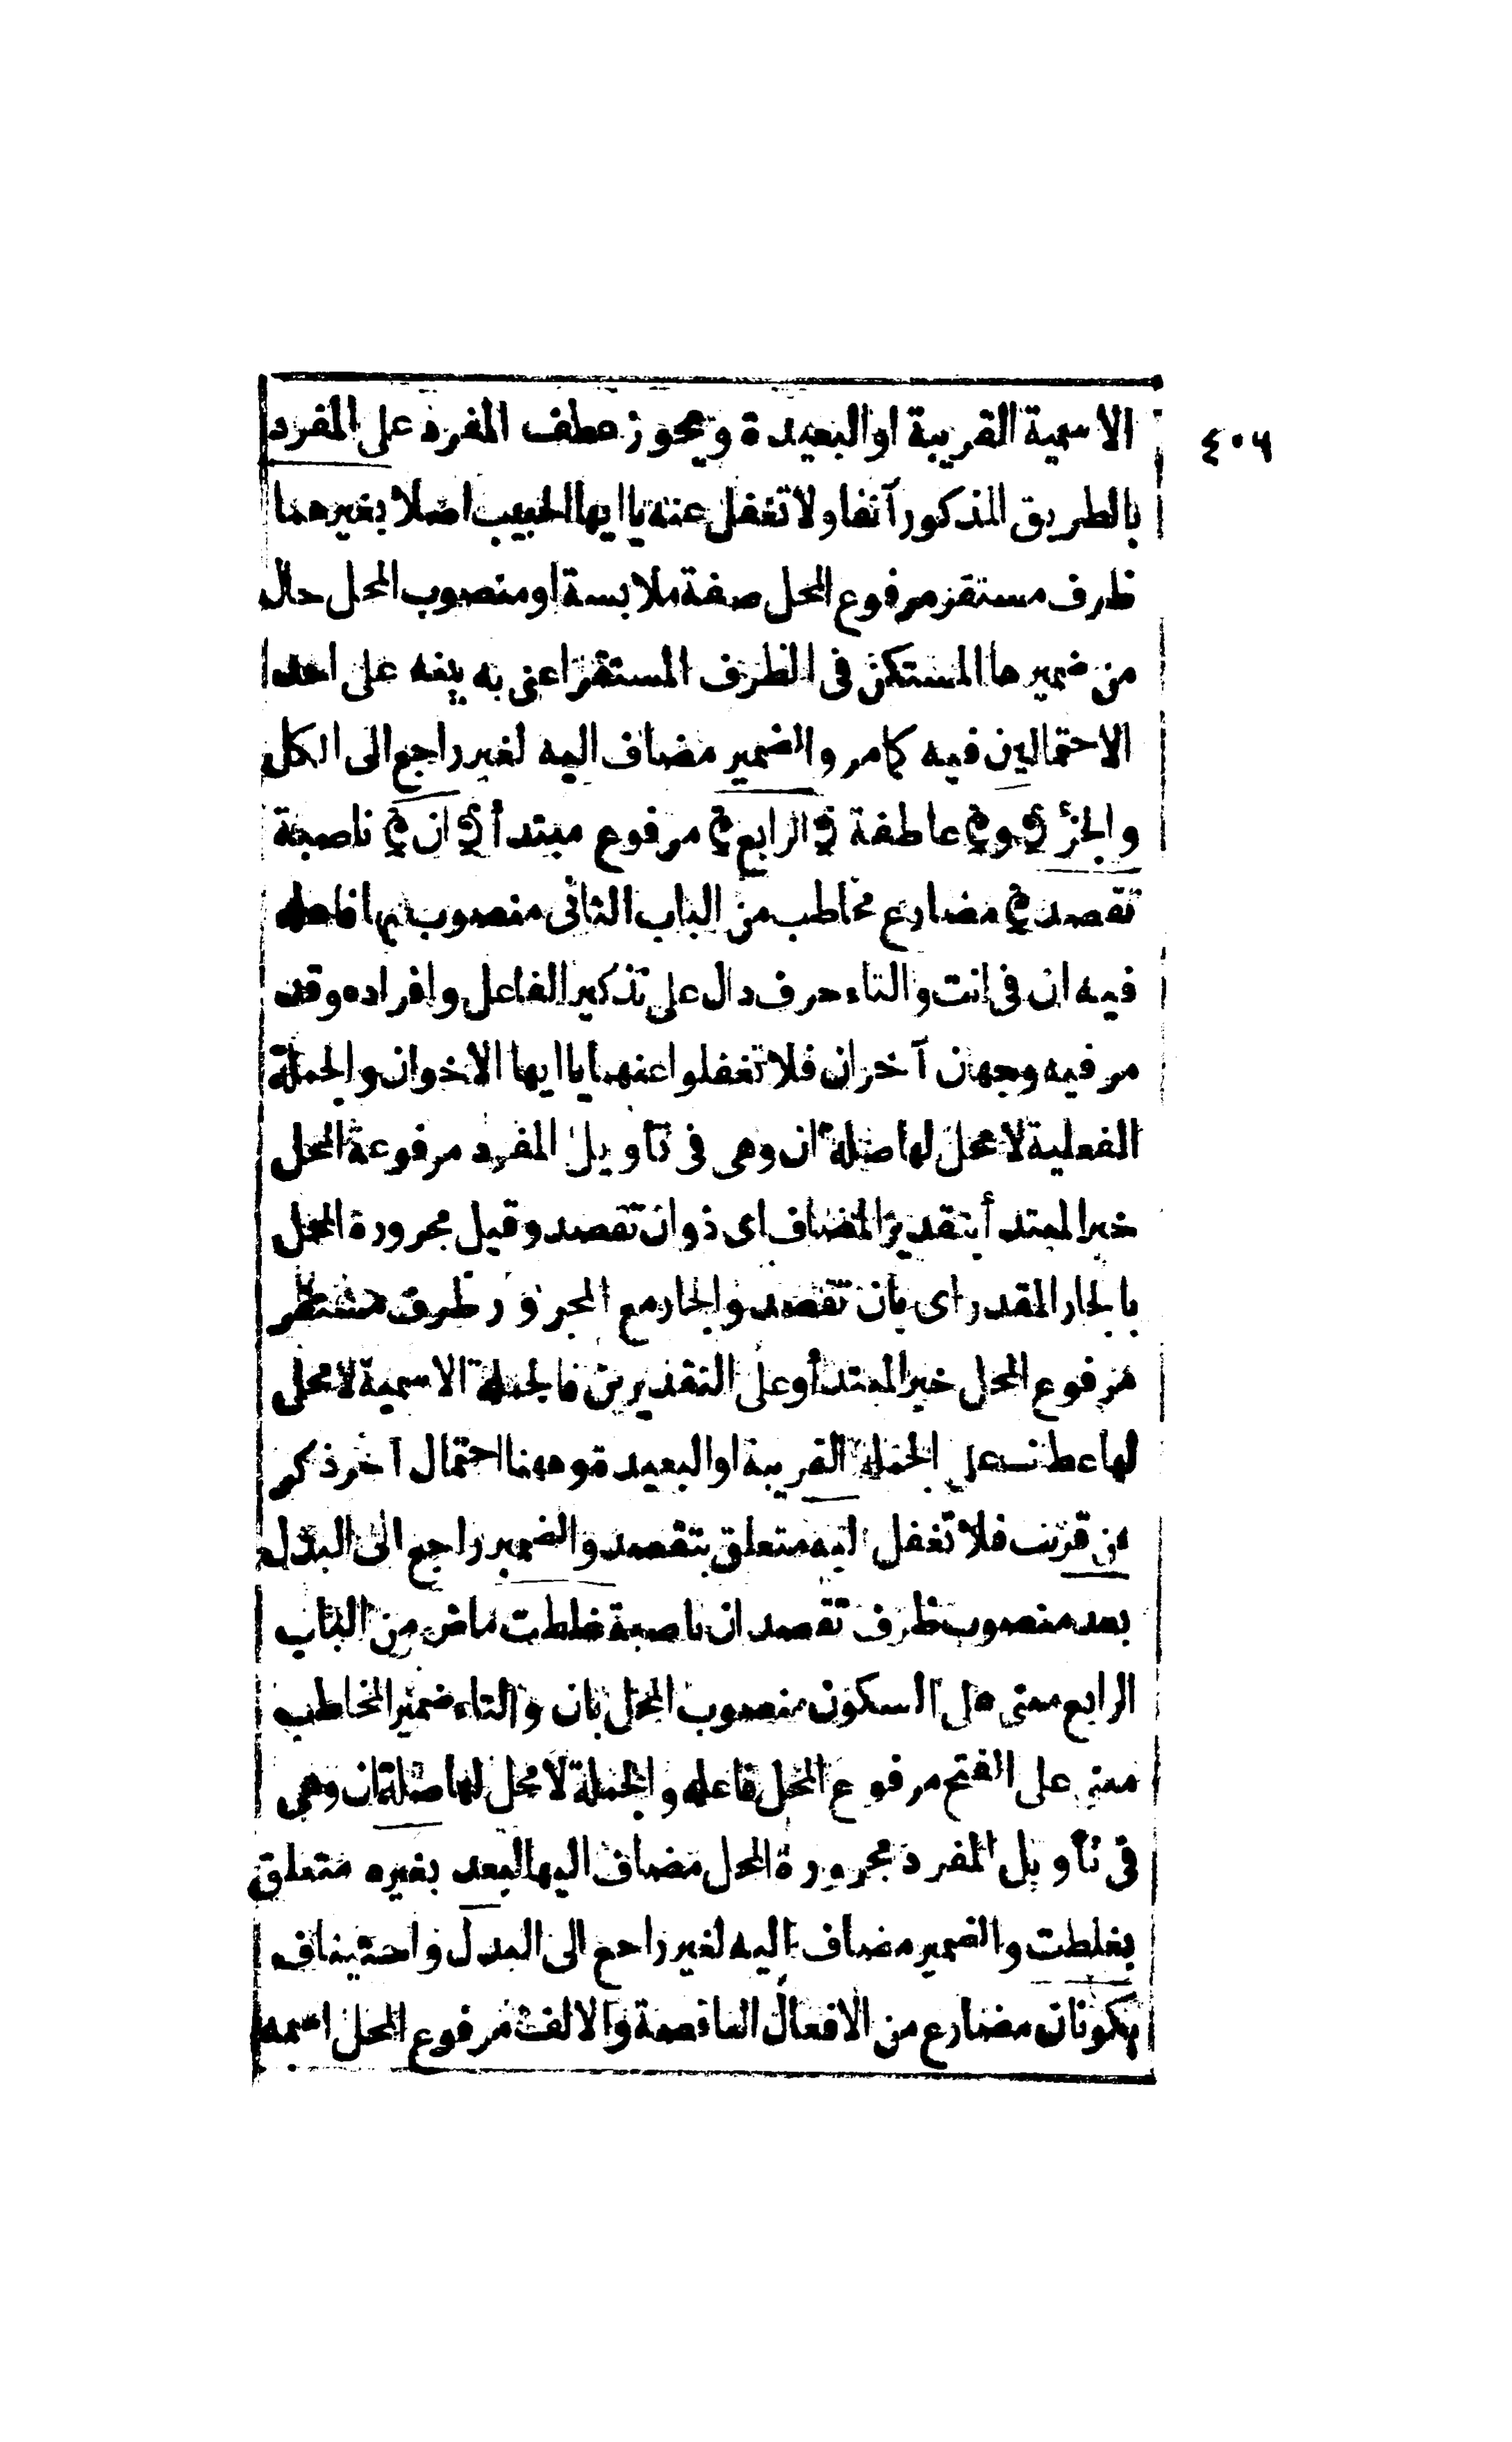 ٤٠٦
الاسمية القريبة او البعيدة ويجوز عطف المفرد على المفرد
بالطريق المذكور آنفا ولا تغفل عنه يا ايها الحبيب اصلا بغيرهما
ظرف مستقر مرفوع المحل صفة ملابسة او منصوب المحل حال
من ضميرها المستكن فى الظرف المستقر اعنى به بينه على احد
الاحتمالين فيه كما مر والضمير مضاف اليه لغير راجع الى الكل
والجزء و عاطفة الرابع مرفوع مبتدأ ان ناصبة
تقصد مضارع مخاطب من الباب الثانى منصوب بها فاعله
فيه ان فى انت والتاء حرف دال على تذكير الفاعل وافراده وقد
مر فيه وجهان آخران فلا تغفلوا عنهما يا ايها الاخوان والجملة
الفعلية لا محل لها صلة ان وهى فى تأويل المفرد مرفوعة المحل
خبر المبتدأ بتقدير المضاف اى ذو ان تقصد وقيل مجرورة المحل
بالجار المقدر اى بان تقصد والجار مع المجرور ظرف مستقر
مرفوع المحل خبر المبتدأ وعلى التقديرين فالجملة الاسمية لا محل
لها عطف على الجملة القريبة او البعيدة وههنا احتمال آخر ذكر
عن قريب فلا تغفل اليه متعلق بتقصد والضمير راجع الى البدل
بعد منصوب ظرف تقصد ان ناصبة غلطت ماض من الباب
الرابع مبنى على السكون منصوب المحل بان والتاء ضمير المخاطب
مبنى على الفتح مرفوع المحل فاعله والجملة لا محل لها صلة ان وهى
فى تأويل المفرد مجرورة المحل مضاف اليها لبعد بغيره متعلق
بغلطت والضمير مضاف اليه لغير راجع الى البدل و استيناف
يكونان مضارع من الافعال الناقصة والالف مرفوع المحل اسمه